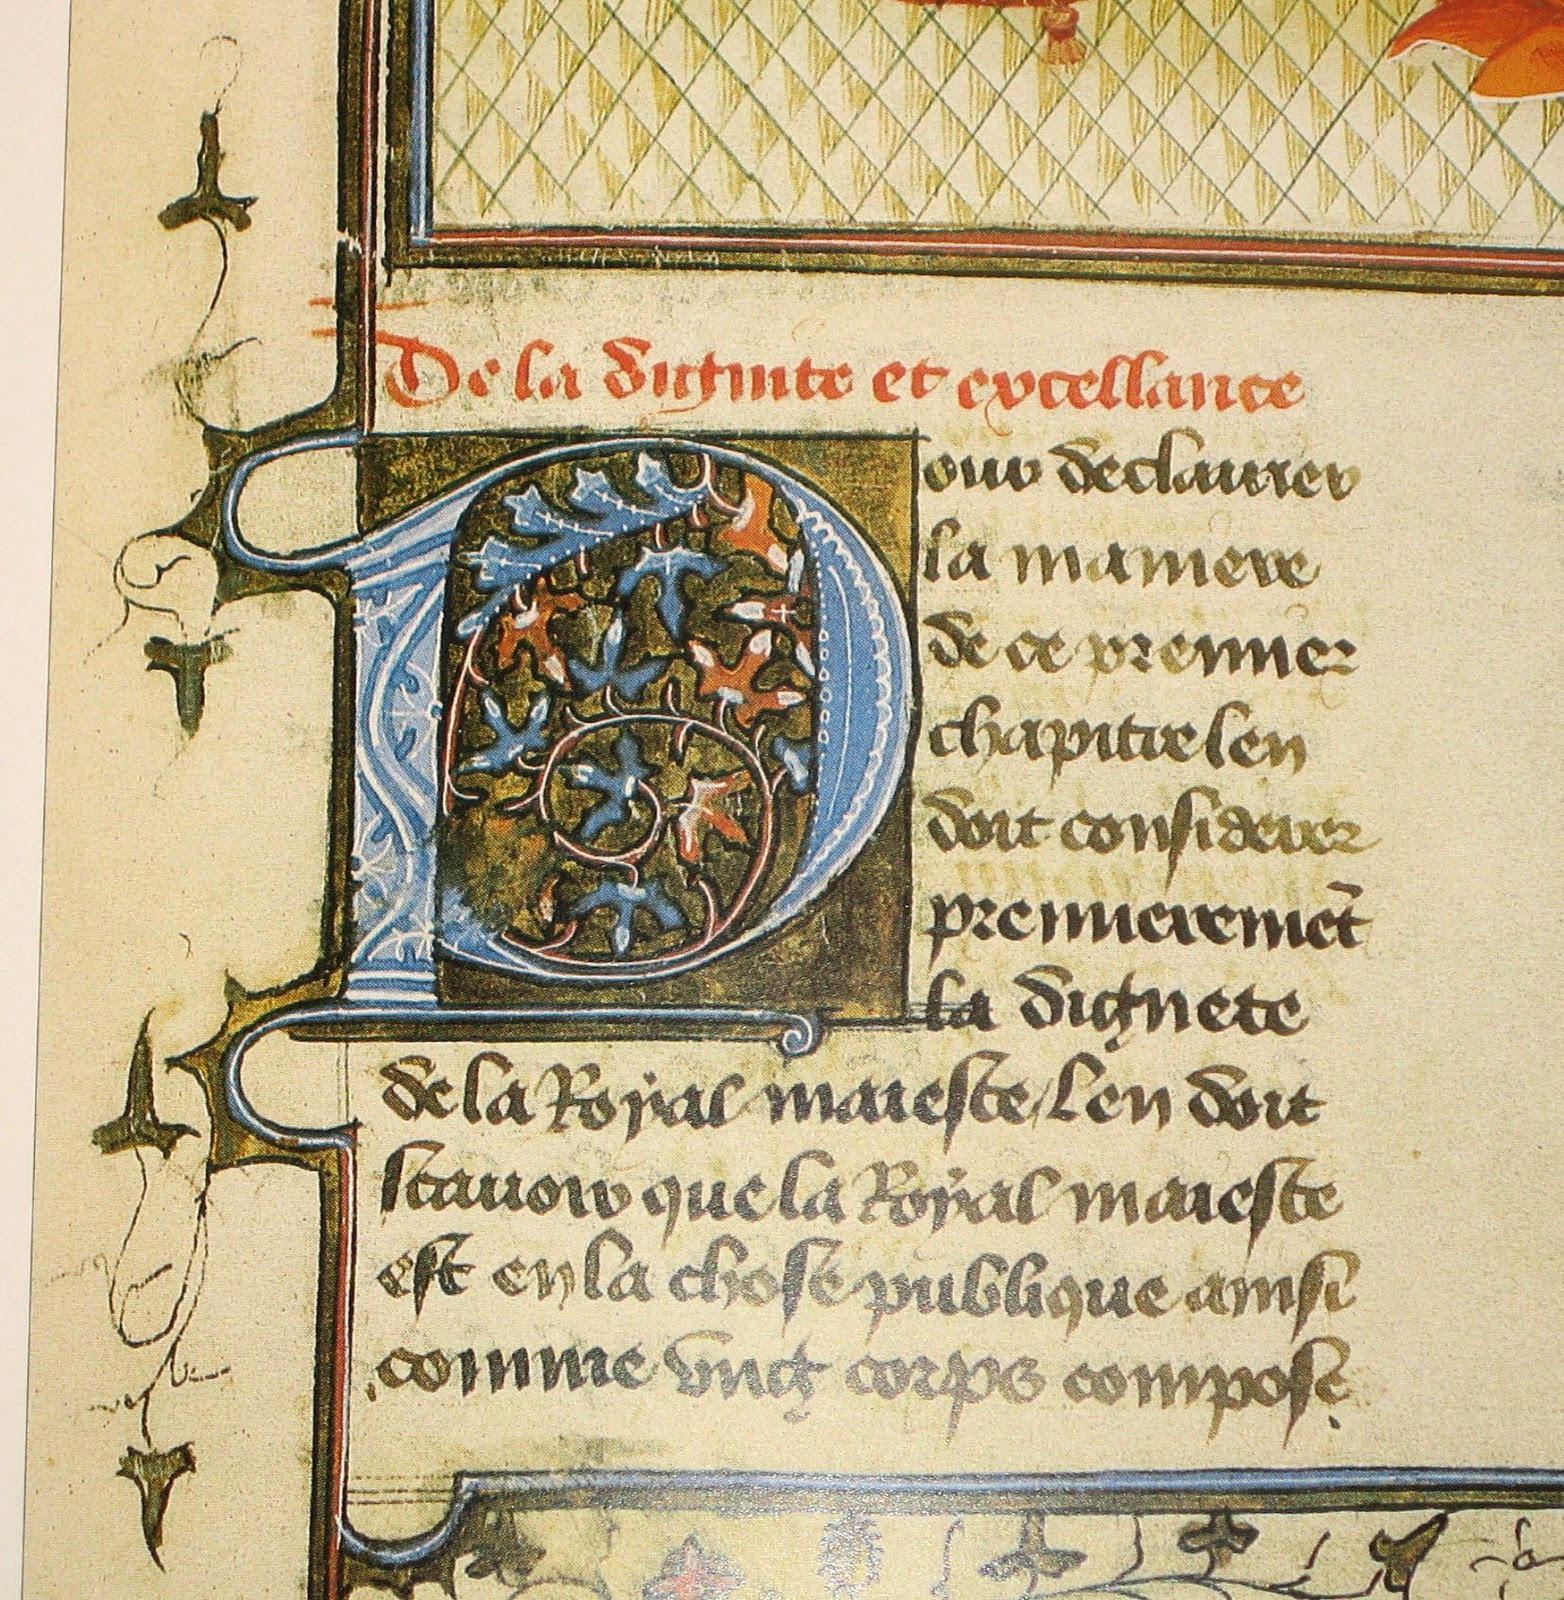 De la dignite et excellance
Pour declairer
la maniere
de ce premier
chapitre len
doit considerer
premieremēt
la dignete
de la Royal maieste / Len doit
scauoir que la Royal maieste
est en la chose publique ainsi
comme vng corps compose